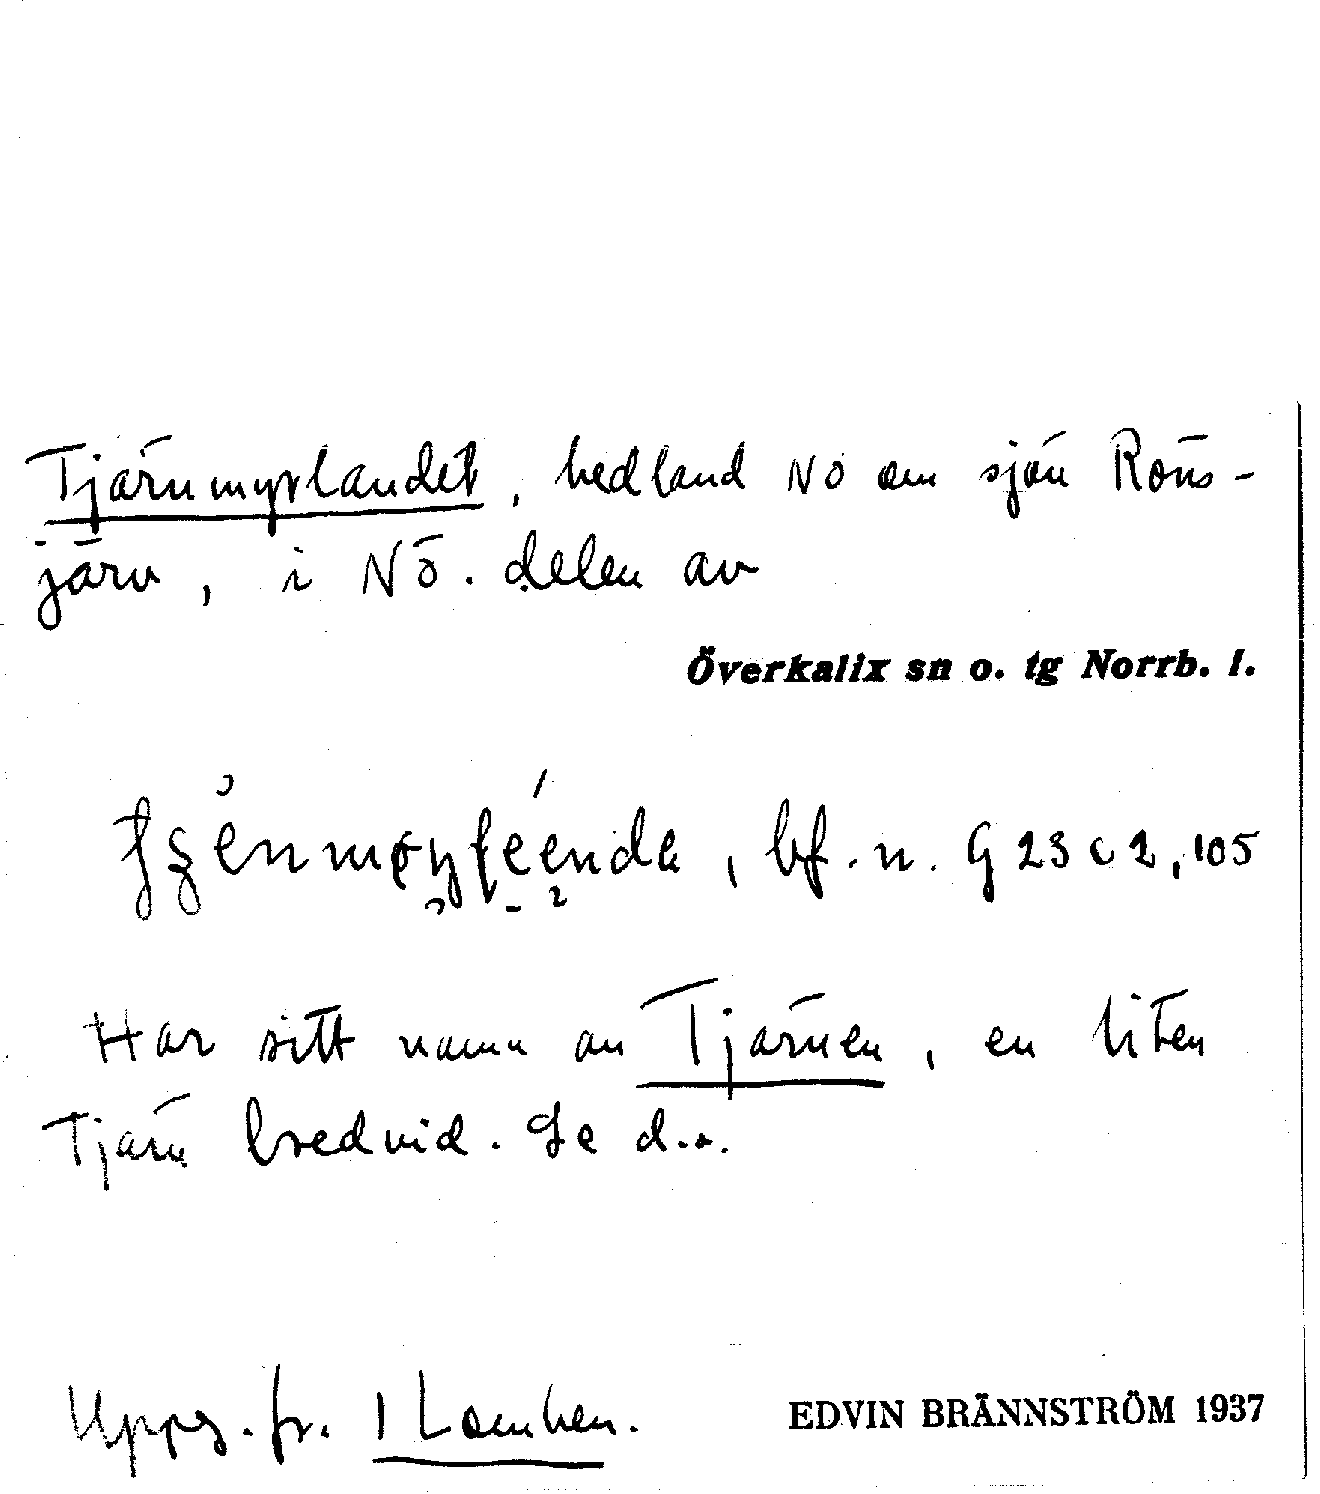 Tjärnmyrlandet, hedland NO om sjön Röns-
järv, i NÖ. delen av
Överkalix sn o. tg Norrb. l.
, bf. n. G 23 c 2, 105
Har sitt namn av Tjärnen, en liten
Tjärn bredvid. Se d.o.
Uppg. fr. 1 Lomben.
EDVIN BRÄNNSTRÖM 1937